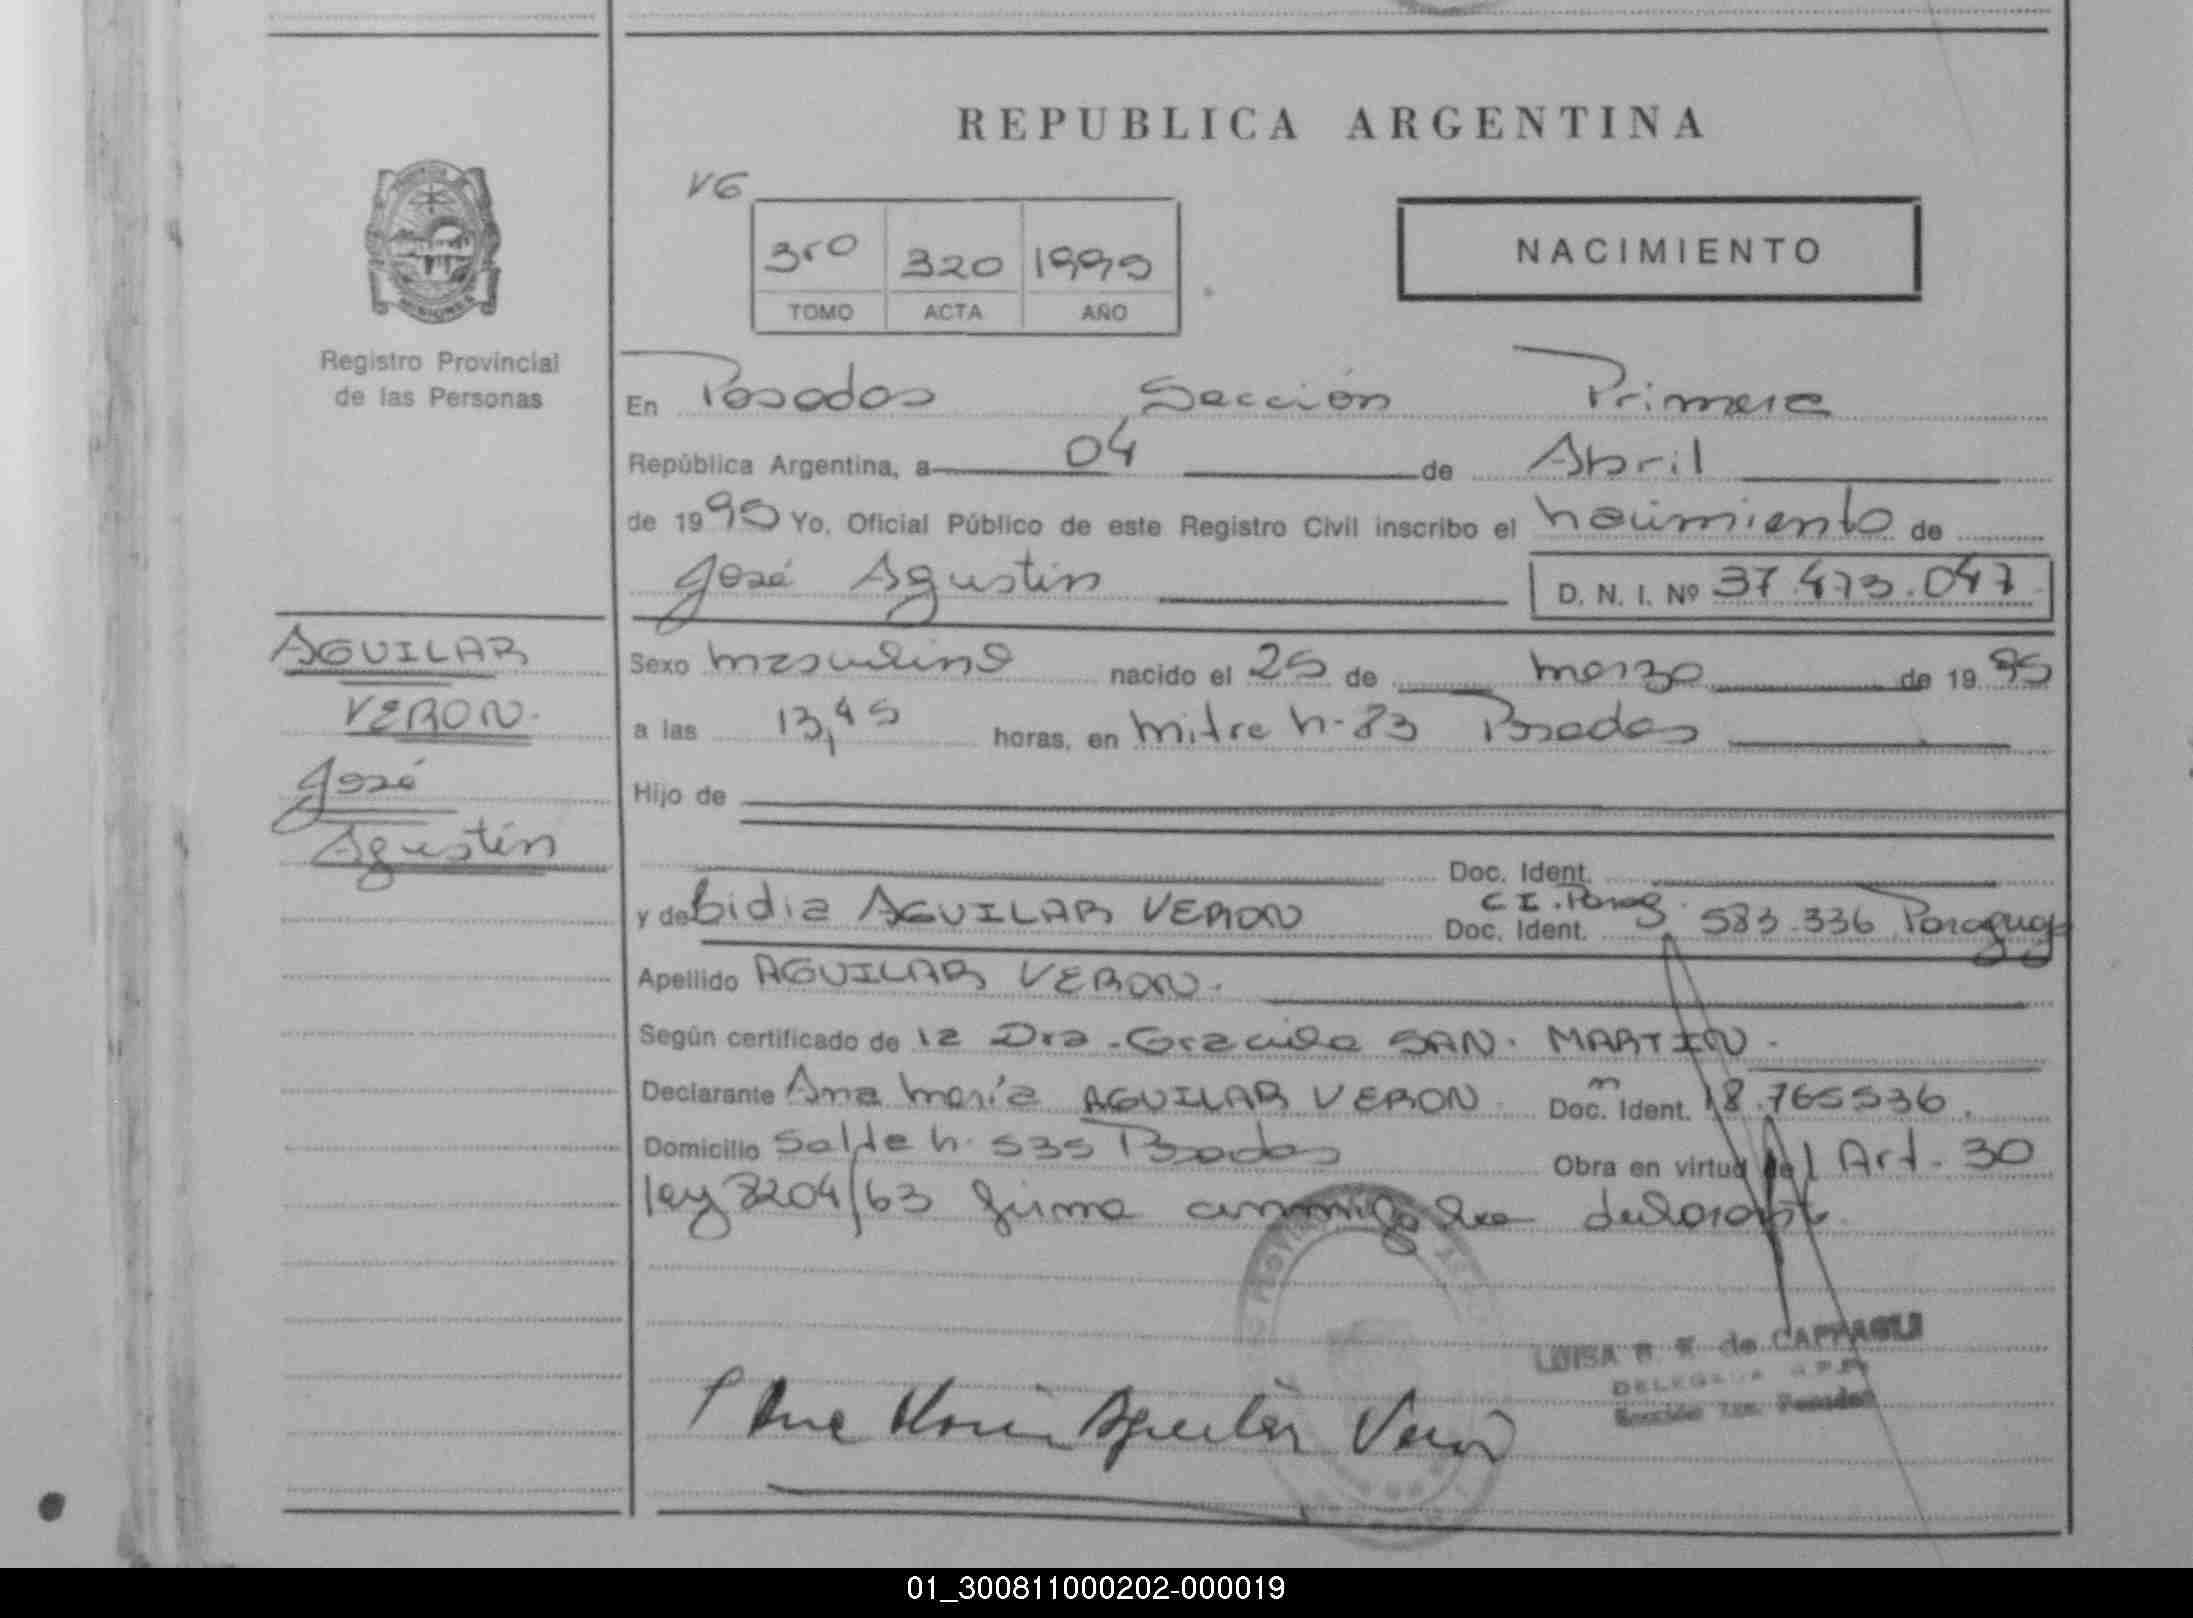 REPUBLICA ARGENTINA
V6
3ro 320 1995
TOMO ACTA AÑO
NACIMIENTO
Registro Provincial
de las Personas
En Posadas Sección Primera
República Argentina, a 04 de Abril
de 1995 Yo, Oficial Público de este Registro Civil inscribo el nacimiento de
José Agustin D. N. I. Nº 37.473.047
AGUILAR
VERON.
José
Agustín
Sexo masculino nacido el 25 de marzo de 1995
a las 13,45 horas, en mitre n- 83 Posadas
Hijo de
Doc. Ident.
y de Lidia AGUILAR VERON Doc. Ident. C I. Parag. 583.336 Paraguay
Apellido AGUILAR VERON.
Según certificado de la Dra. Graciela SAN. MARTIN.
Declarante Ana María AGUILAR VERON Doc. Ident. 18.765536.
Domicilio Salta n. 535 Posadas Obra en virtud del Art. 30
ley 8204/63 firma conmigo la declarante
LUISA de
DELEGADA
Sección 1ra. Posadas
Ana María Aguilar Verón
01_300811000202-000019